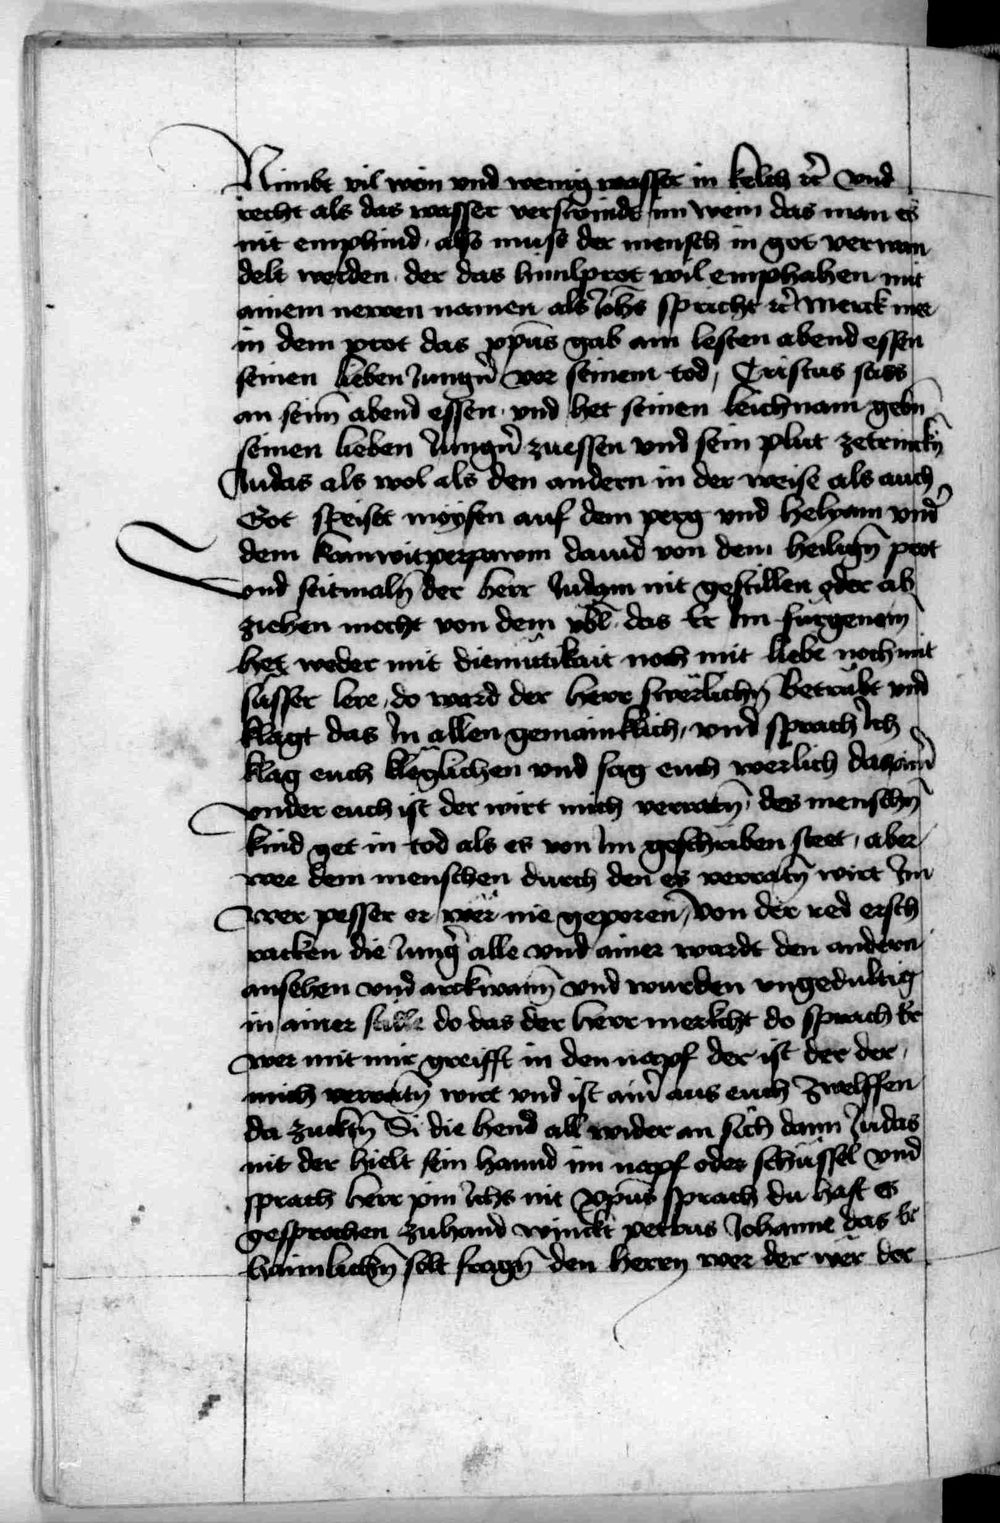 Nimbt vil wein vnd wenig wasser in kelch ꝛc̃ vnd
recht als das wasser verswindt im wein das man es
nit emphind · also muss der mensch in got verwan
delt werden · der das himlprot wil emphahen mit
ainem newen namen als Joh̄s spricht ꝛc̃ Merck mer
in dem prot das xp̄us gab am lesten abend essen
seinen lieben Jungn̄ vor seinem tod / Cristus sass
an seinē abend essen · vnd het seinen leichnam gebn̄
seinen lieben Jungn̄ zuessen vnd sein plut zetrinckn̄
Judas als wol als den andern in der weise als auch
Got speiset moysen auf dem perg vnd helyam vnd̄
dem kranwitperpawm dauid von dem heilign̄ prot
vnd seitmaln̄ der herr Judam nit gestillen oder ab
ziehen mocht von dem vbl̄ · das Er Im fürgenom̄
het weder mit diemütikait noch mit liebe noch mit
susser lere / do ward der herr swerlichn̄ betrübt vnd
klagt das In allen gemainklich / vnd sprach Ich
klag euch kleglichen vnd sag euch werlich das ain̄
vnder euch ist der wirt mich verratn̄ / des menschn̄
kind get in tod als es von Im geschriben steet / aber
wee dem menschen durch den es verratn̄ wirt Im
wer pesser er wër nie geporen̄ / von der red ersch
racken die Junḡ alle vnd ainer wardt den andern
ansehen vnd arckwann̄ vnd wurden vngedultig
in ainer stille do das der herr merkcht do sprach Er
wer mit mir greifft in den napf der ist der der
mich verratn̄ wirt vnd ist ain̄ aus euch zwelffen
da zuckn̄ Si die hend all wider an sich dann Judas
nit der hielt sein hannd im napf oder schüssel vnd
sprach herr pin Ichs nit xp̄us sprach du hast es
gesprochen zuhand winckt petrus Johanne das Er
haimlichn̄ solt fragn̄ den herrn wer der wër der